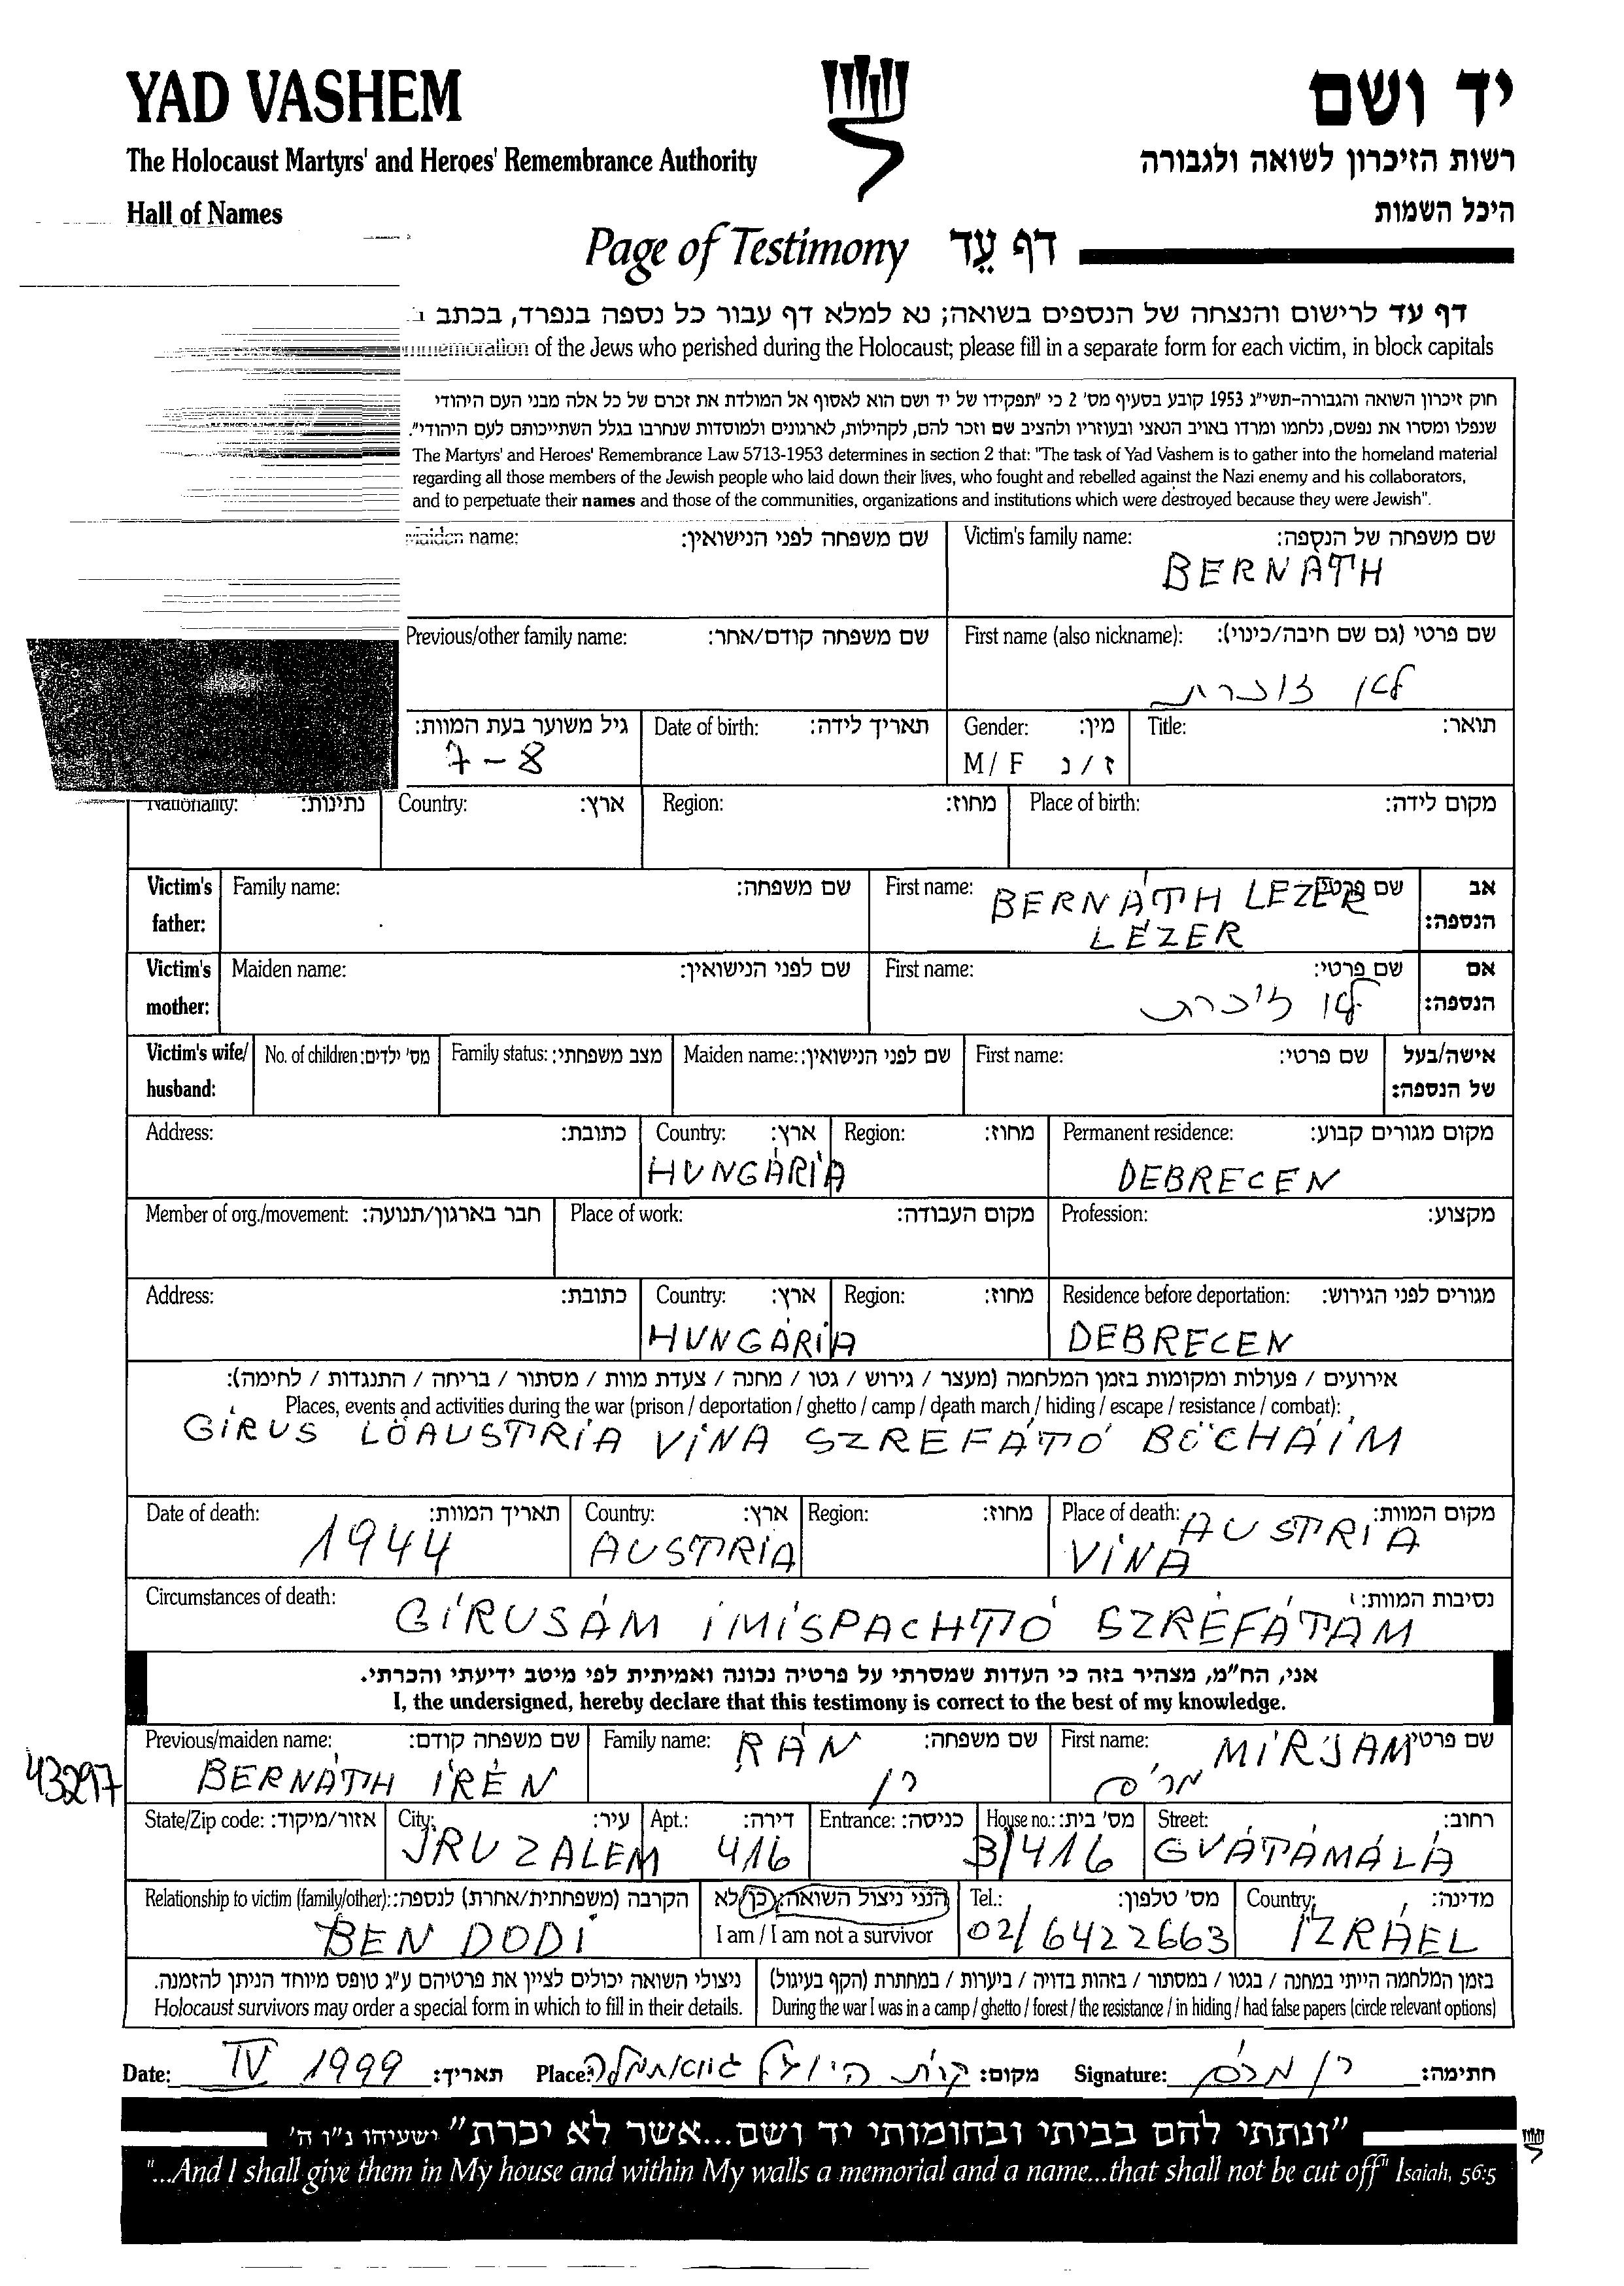 YAD VASHEM
יד ושם
The Holocaust Martyrs' and Heroes' Remembrance Authority
רשות הזיכרון לשואה ולגבורה
Hall of Names
היכל השמות
Page of Testimony דף עֵד
דף עד לרישום והנצחה של הנספים בשואה; נא למלא דף עבור כל נספה בנפרד, בכתב
of the Jews who perished during the Holocaust; please fill in a separate form for each victim, in block capitals
חוק זיכרון השואה והגבורה-תשי"ג 1953 קובע בסעיף מס' 2 כי "תפקידו של יד ושם הוא לאסוף אל המולדת את זכרם של כל אלה מבני העם היהודי
שנפלו ומסרו את נפשם, נלחמו ומרדו באויב הנאצי ובעוזריו ולהציב שם וזכר להם, לקהילות, לארגונים ולמוסדות שנחרבו בגלל השתייכותם לעם היהודי".
The Martyrs' and Heroes' Remembrance Law 5713-1953 determines in section 2 that: "The task of Yad Vashem is to gather into the homeland material
regarding all those members of the Jewish people who laid down their lives, who fought and rebelled against the Nazi enemy and his collaborators,
and to perpetuate their names and those of the communities, organizations and institutions which were destroyed because they were Jewish".
Maiden name: שם משפחה לפני הנישואין: Victim's family name: שם משפחה של הנספה:
BERNÁTH
Previous/other family name: שם משפחה קודם/אחר: First name (also nickname): שם פרטי (גם שם חיבה/כינוי):
לא זוכרת
גיל משוער בעת המוות: Date of birth: תאריך לידה: Gender: מין: Title: תואר:
7-8 M/F ז/נ
Nationality: נתינות: Country: ארץ: Region: מחוז: Place of birth: מקום לידה:
Victim's father: Family name: שם משפחה: First name: שם פרטי: אב הנספה:
BERNÁTH LEZER
LÉZER
Victim's mother: Maiden name: שם לפני הנישואין: First name: שם פרטי: אם הנספה:
לא זוכרת
Victim's wife/husband: No. of children: מס' ילדים: Family status: מצב משפחתי: Maiden name: שם לפני הנישואין: First name: שם פרטי: אישה/בעל של הנספה:
Address: כתובת: Country: ארץ: Region: מחוז: Permanent residence: מקום מגורים קבוע:
HUNGÁRIA DEBRECEN
Member of org./movement: חבר בארגון/תנועה: Place of work: מקום העבודה: Profession: מקצוע:
Address: כתובת: Country: ארץ: Region: מחוז: Residence before deportation: מגורים לפני הגירוש:
HUNGÁRIA DEBRECEN
אירועים / פעולות ומקומות בזמן המלחמה (מעצר / גירוש / גטו / מחנה / צעדת מוות / מסתור / בריחה / התנגדות / לחימה):
Places, events and activities during the war (prison / deportation / ghetto / camp / death march / hiding / escape / resistance / combat):
GIRUS LÖAUSTRIA VINA SZREFÁTÓ BÖCHÁIM
Date of death: תאריך המוות: Country: ארץ: Region: מחוז: Place of death: מקום המוות:
1944 AUSTRIA AUSTRIA
VINA
Circumstances of death: נסיבות המוות:
GIRUSÁM IMISPACHTÓ SZRÉFÁTAM
אני, הח"מ, מצהיר בזה כי העדות שמסרתי על פרטיה נכונה ואמיתית לפי מיטב ידיעתי והכרתי.
I, the undersigned, hereby declare that this testimony is correct to the best of my knowledge.
Previous/maiden name: שם משפחה קודם: Family name: שם משפחה: First name: שם פרטי
BERNÁTH IRÉN RÁN MIRJAM
רן מרים
43297
State/Zip code: אזור/מיקוד: City: עיר: Apt.: דירה: Entrance: כניסה: House no.: מס' בית: Street: רחוב:
JRUZALEM 416 3/416 GVÁTÁMÁLÁ
Relationship to victim (family/other): הקרבה (משפחתית/אחרת) לנספה: הנני ניצול השואה: כן/לא Tel.: מס' טלפון: Country: מדינה:
BEN DODI I am / I am not a survivor 02/6422663 IZRÁEL
ניצולי השואה יכולים לציין את פרטיהם ע"ג טופס מיוחד הניתן להזמנה. בזמן המלחמה הייתי במחנה / בגטו / במסתור / בזהות בדויה / ביערות / במחתרת (הקף בעיגול)
Holocaust survivors may order a special form in which to fill in their details. During the war I was in a camp / ghetto / forest / the resistance / in hiding / had false papers (circle relevant options)
Date: IV 1999 תאריך: Place: גוואטמלה מקום: Signature: רן מרים חתימה:
"ונתתי להם בביתי ובחומותי יד ושם...אשר לא יכרת" ישעיהו נ"ו ה'
"...And I shall give them in My house and within My walls a memorial and a name...that shall not be cut off" Isaiah, 56:5